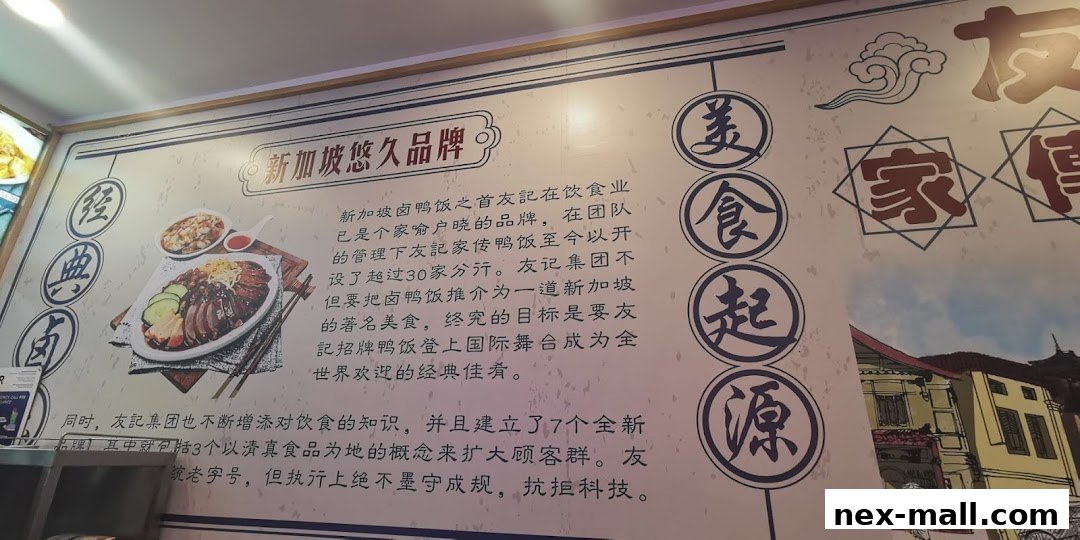 新加坡悠久品牌
经典卤
新加坡卤鸭饭之首友記在饮食业
已是个家喻户晓的品牌，在团队
的管理下友記家传鸭饭至今以开
设了超过30家分行。友记集团不
但要把卤鸭饭推介为一道新加坡
的著名美食，终究的目标是要友
記招牌鸭饭登上国际舞台成为全
世界欢迎的经典佳肴。
同时，友記集团也不断增添对饮食的知识，并且建立了7个全新
品牌，其中就包括3个以清真食品为地的概念来扩大顾客群。友
统老字号，但执行上绝不墨守成规，抗拒科技。
美食起源
友
家傳
nex-mall.com